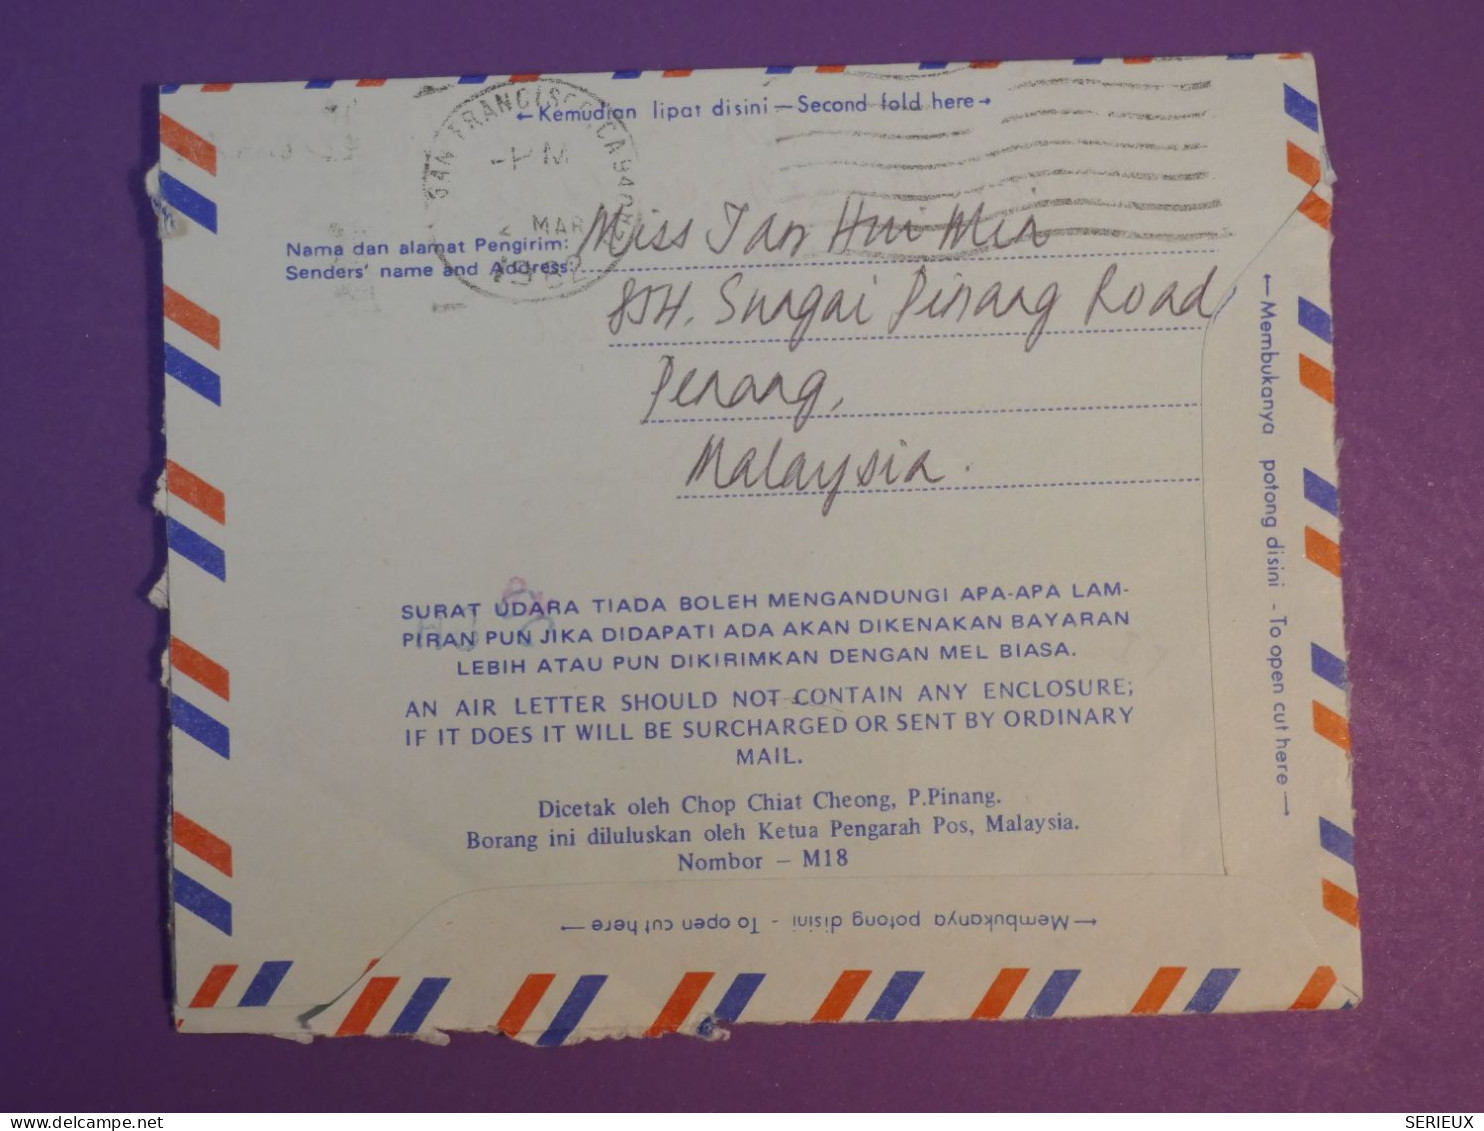 ←Kemudian lipat disini—Second fold here→
SAN FRANCISCO, CA 940
PM
MAR
1982
Nama dan alamat Pengirim: Miss Tan Hui Min
Senders' name and Address:
85H, Sungai Pinang Road
Penang,
Malaysia.
←Membukanya potong disini - To open cut here→
SURAT UDARA TIADA BOLEH MENGANDUNGI APA-APA LAM-
PIRAN PUN JIKA DIDAPATI ADA AKAN DIKENAKAN BAYARAN
LEBIH ATAU PUN DIKIRIMKAN DENGAN MEL BIASA.
AN AIR LETTER SHOULD NOT CONTAIN ANY ENCLOSURE;
IF IT DOES IT WILL BE SURCHARGED OR SENT BY ORDINARY
MAIL.
Dicetak oleh Chop Chiat Cheong, P.Pinang.
Borang ini diluluskan oleh Ketua Pengarah Pos, Malaysia.
Nombor – M18
←Membukanya potong disini - To open cut here→
delcampe.net
SERIEUX